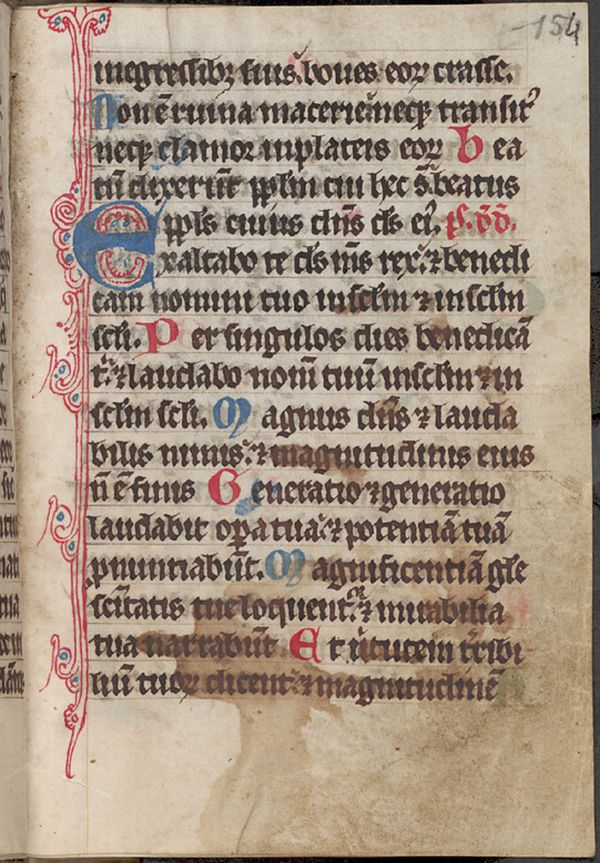 154
in egressibꝫ suis. boues eoꝝ crasse.
Non ē ruina macerie neqꝫ transit᷒
neqꝫ clamor in plateis eoꝝ Bea
tū dixerūt pplm cui hec s̄. beatus
ppls cuius dn̄s ds eiꝰ. ps. dd.
Exaltabo te ds m̄s rex. ⁊ benedi
cam nomini tuo in sclm ⁊ in sclm
scli. Per singulos dies benedicā
t᷒. ⁊ laudabo nom̄ tuū in sclm ⁊ in
sclm scli. Magnus dn̄s ⁊ lauda
bilis nimis. ⁊ magnitudinis eius
n̄ ē finis Generatio ⁊ generatio
laudabit opa tua. ⁊ potentiā tuā
ꝓnuntiabūt. Magnificentiā gle
sc̄itatis tue loquent᷒. ⁊ mirabilia
tua narrabūt Et ūtutem t᷒ribi
liū tuoꝝ dicent. ⁊ magnitudinē